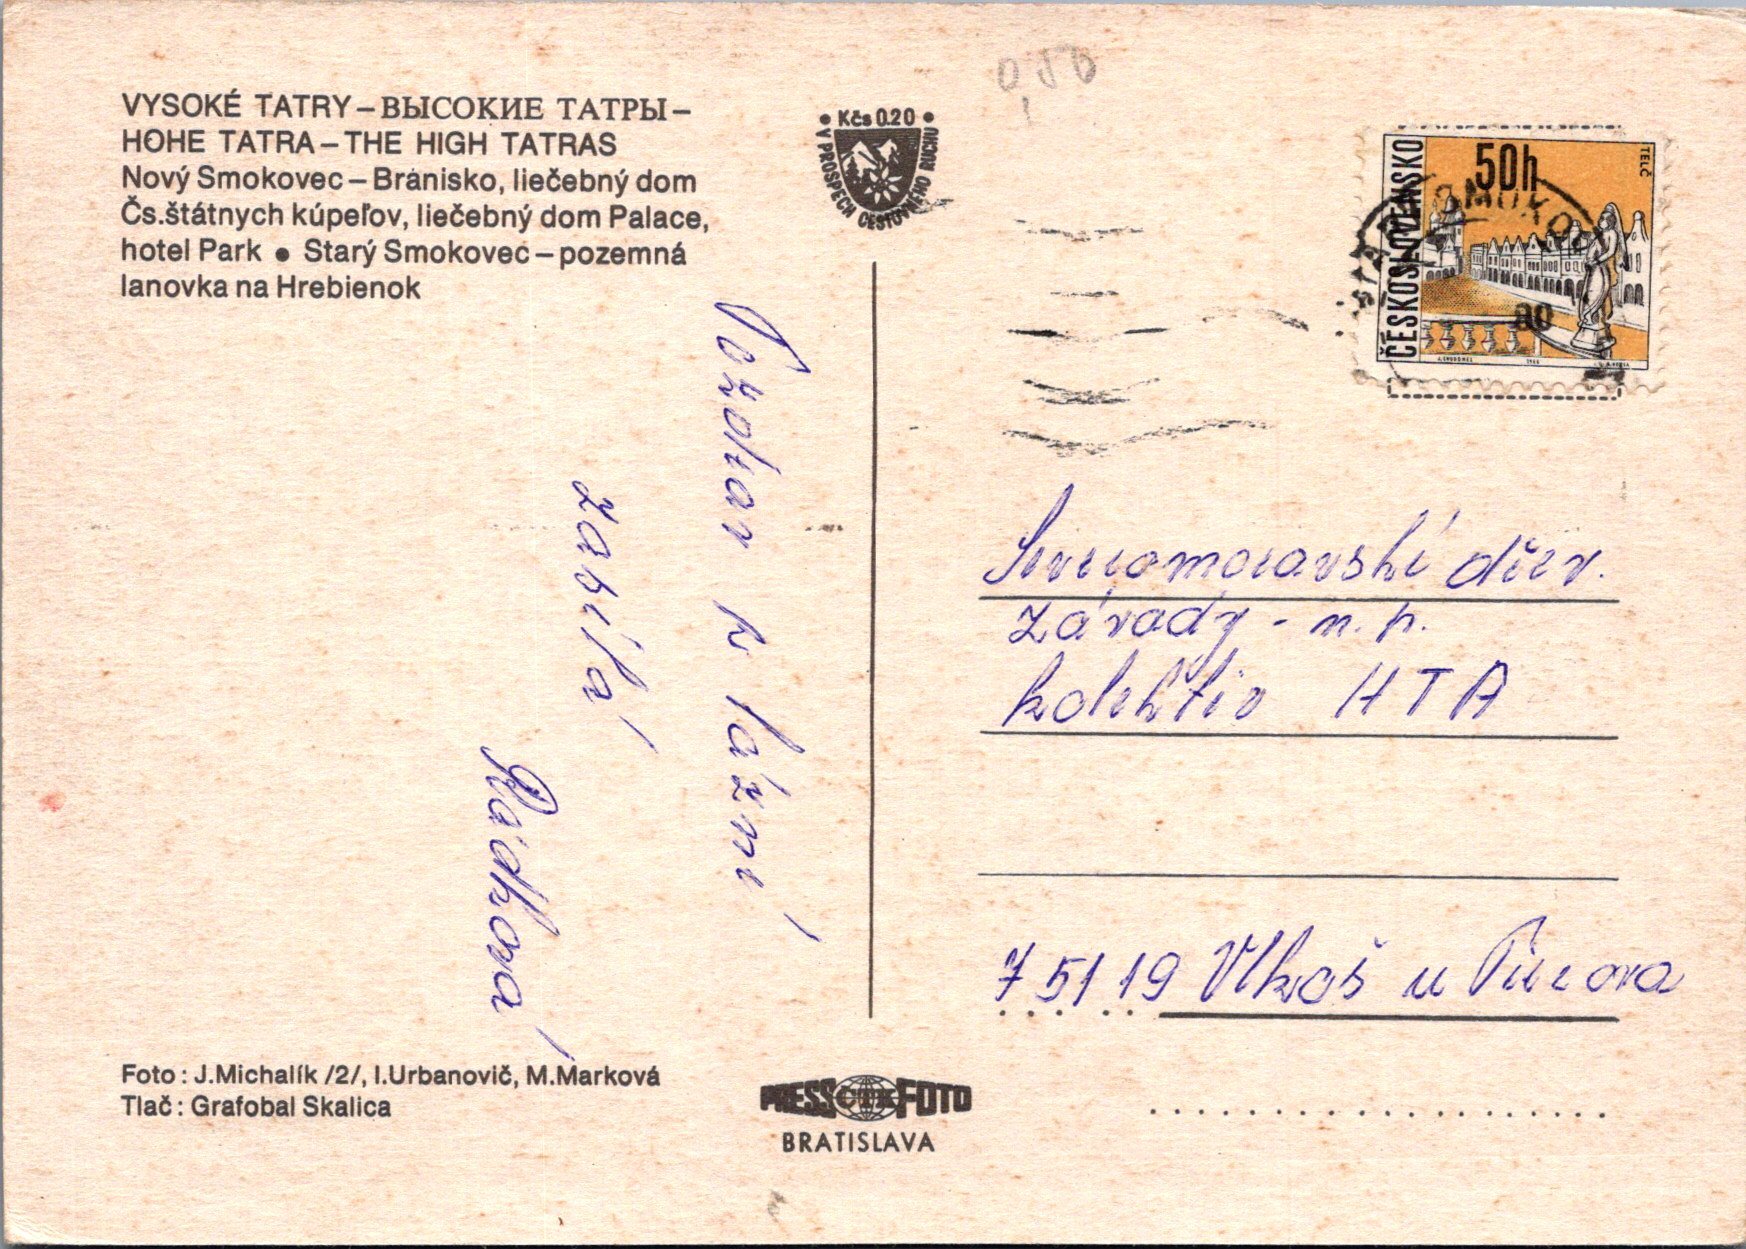 VYSOKÉ TATRY – ВЫСОКИЕ ТАТРЫ –
HOHE TATRA – THE HIGH TATRAS
Nový Smokovec – Bránisko, liečebný dom
Čs.štátnych kúpeľov, liečebný dom Palace,
hotel Park • Starý Smokovec – pozemná
lanovka na Hrebienok
• Kčs 0.20 •
V PROSPECH CESTOVNÉHO RUCHU
ČESKOSLOVENSKO
50h
TELČ
80
Pozdrav z lázní
zasílá
Rádková
Severomoravské dřev.
závody - n. p.
kolektiv HTA
75119 Vlkoš u Přerova
Foto : J.Michalík /2/, I.Urbanovič, M.Marková
Tlač : Grafobal Skalica
PRESS ČTK FOTO
BRATISLAVA